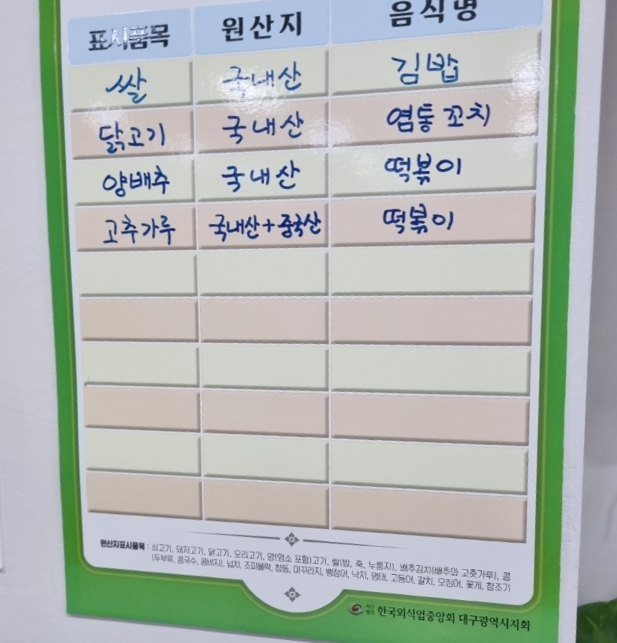 표시품목 원산지 음식명
쌀 국내산 김밥
닭고기 국내산 염통꼬치
양배추 국내산 떡볶이
고추가루 국내산+중국산 떡볶이
원산지표시품목 : 쇠고기, 돼지고기, 닭고기, 오리고기, 양(염소 포함)고기, 쌀(밥, 죽, 누룽지), 배추김치(배추와 고춧가루), 콩
(두부류, 콩국수, 콩비지), 넙치, 조피볼락, 참돔, 미꾸라지, 뱀장어, 낙지, 명태, 고등어, 갈치, 오징어, 꽃게, 참조기
한국외식업중앙회 대구광역시지회